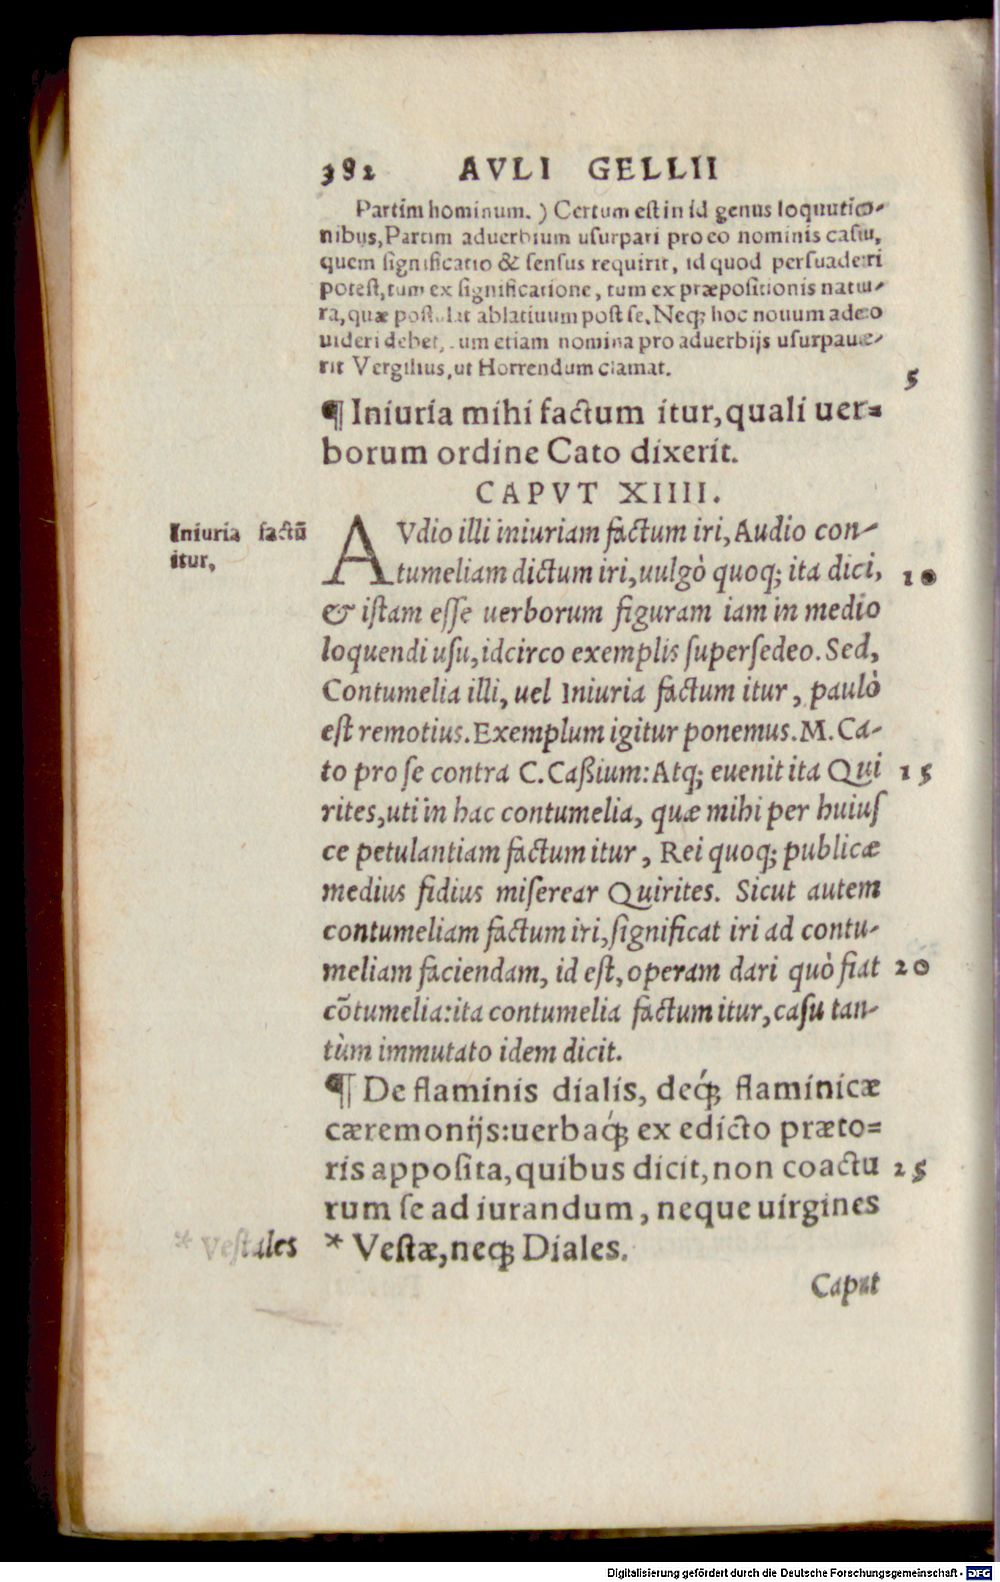 392 AVLI GELLII
Partim hominum. ) Certum est in id genus loquutio-
nibus, Partim aduerbium usurpari pro eo nominis casu,
quem significatio & sensus requirit, id quod persuaderi
potest, tum ex significatione, tum ex præpositionis natu-
ra, quæ postulat ablatiuum post se. Neq; hoc nouum adeo
uideri debet, cum etiam nomina pro aduerbijs usurpaue-
rit Vergilius, ut Horrendum clamat.
5
¶ Iniuria mihi factum itur, quali uer=
borum ordine Cato dixerit.
CAPVT XIIII.
Iniuria factũ
itur.
AVdio illi iniuriam factum iri, Audio con-
tumeliam dictum iri, uulgò quoq; ita dici, 10
& istam esse uerborum figuram iam in medio
loquendi usu, idcirco exemplis supersedeo. Sed,
Contumelia illi, uel Iniuria factum itur, paulò
est remotius. Exemplum igitur ponemus. M. Ca-
to pro se contra C. Caßium: Atq; euenit ita Qui 15
rites, uti in hac contumelia, quæ mihi per huius
ce petulantiam factum itur, Rei quoq; publicæ
medius fidius miserear Quirites. Sicut autem
contumeliam factum iri, significat iri ad contu-
meliam faciendam, id est, operam dari quò fiat 20
cõtumelia: ita contumelia factum itur, casu tan-
tùm immutato idem dicit.
¶ De flaminis dialis, deq́; flaminicæ
cæremonijs: uerbaq́; ex edicto præto=
ris apposita, quibus dicit, non coactu 25
rum se ad iurandum, neque uirgines
* Vestales
* Vestæ, neq; Diales.
Caput
Digitalisierung gefördert durch die Deutsche Forschungsgemeinschaft - DFG